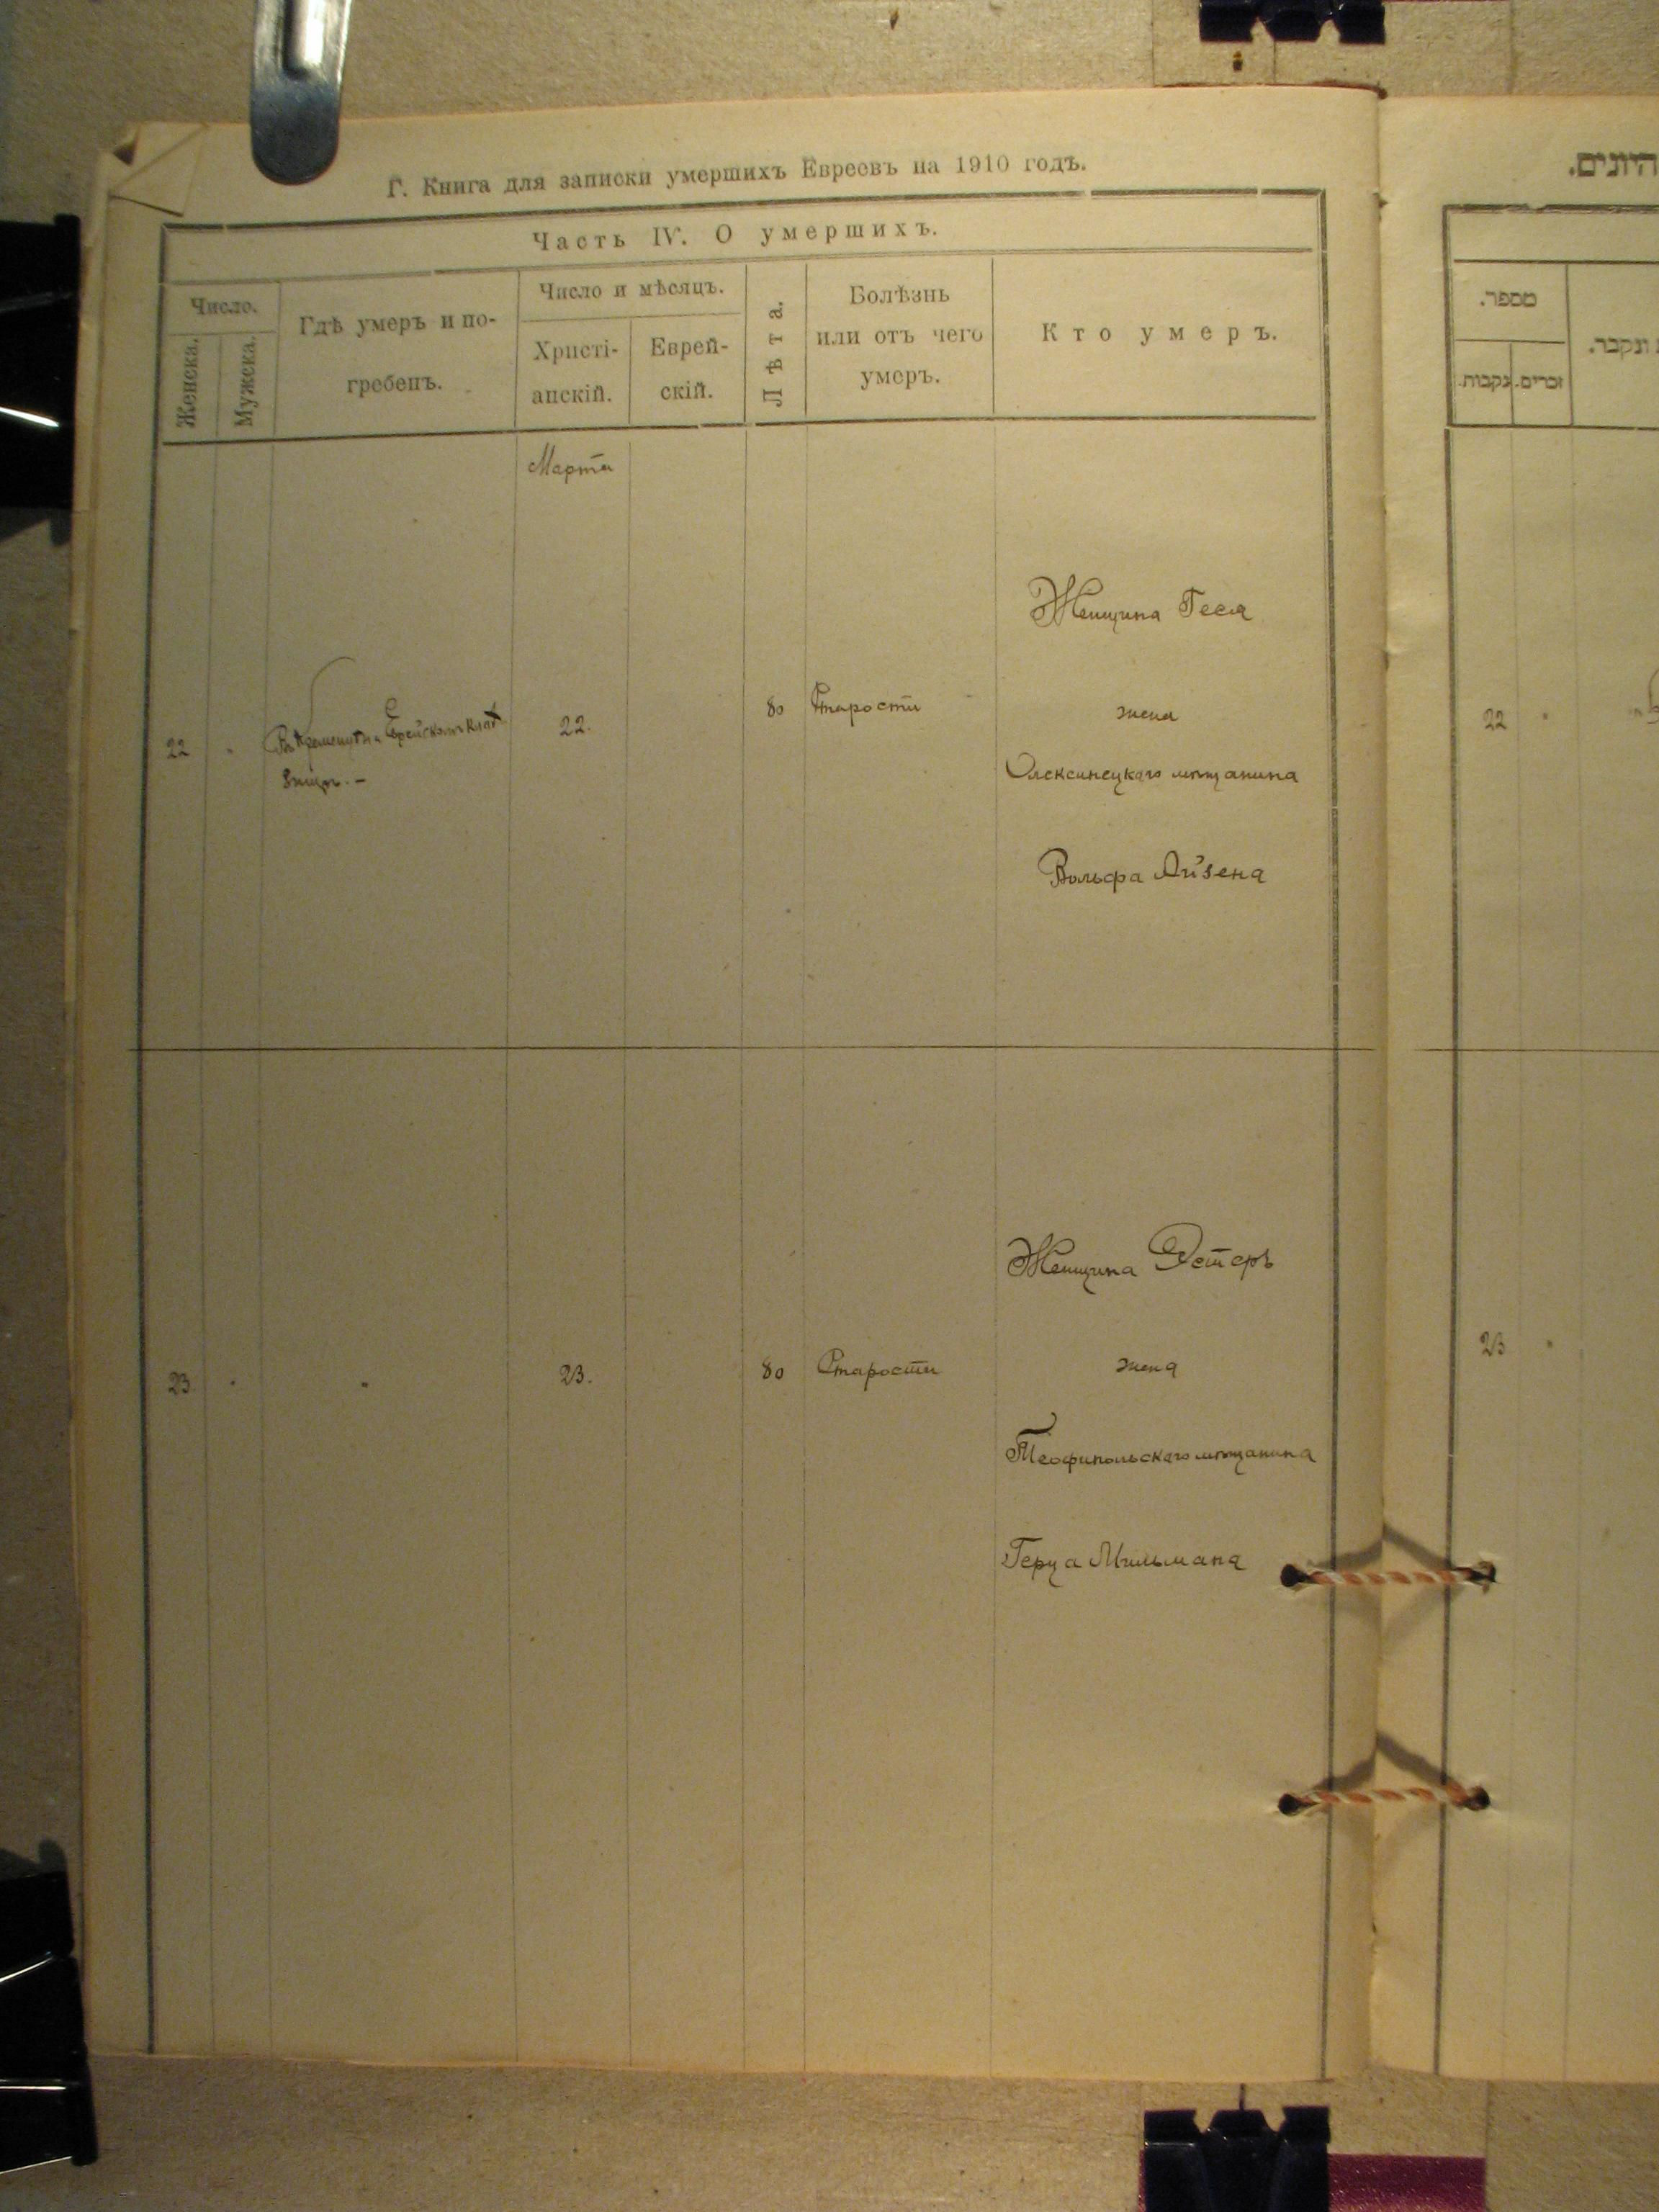 Г. Книга для записки умершихъ Евреевъ на 1910 годъ.
Часть IV. О умершихъ.
Число.
Женска.
Мужска.
Гдѣ умеръ и по-
гребенъ.
Число и мѣсяцъ.
Христі-
анскій.
Еврей-
скій.
Лѣта.
Болѣзнь
или отъ чего
умеръ.
Кто умеръ.
Марта
Женщина Геся
22 " Въ Еврейскомъ клад 22. 80 Старости жена
бищѣ. –
Олексинецкаго мѣщанина
Вольфа Айзена
Женщина Эстеръ
23 " " 23. 80 Старости жена
Теофипольскаго мѣщанина
Герца Мильмана
מספר.
זכרים.
נקבות.
ונקבר.
22 "
23 "